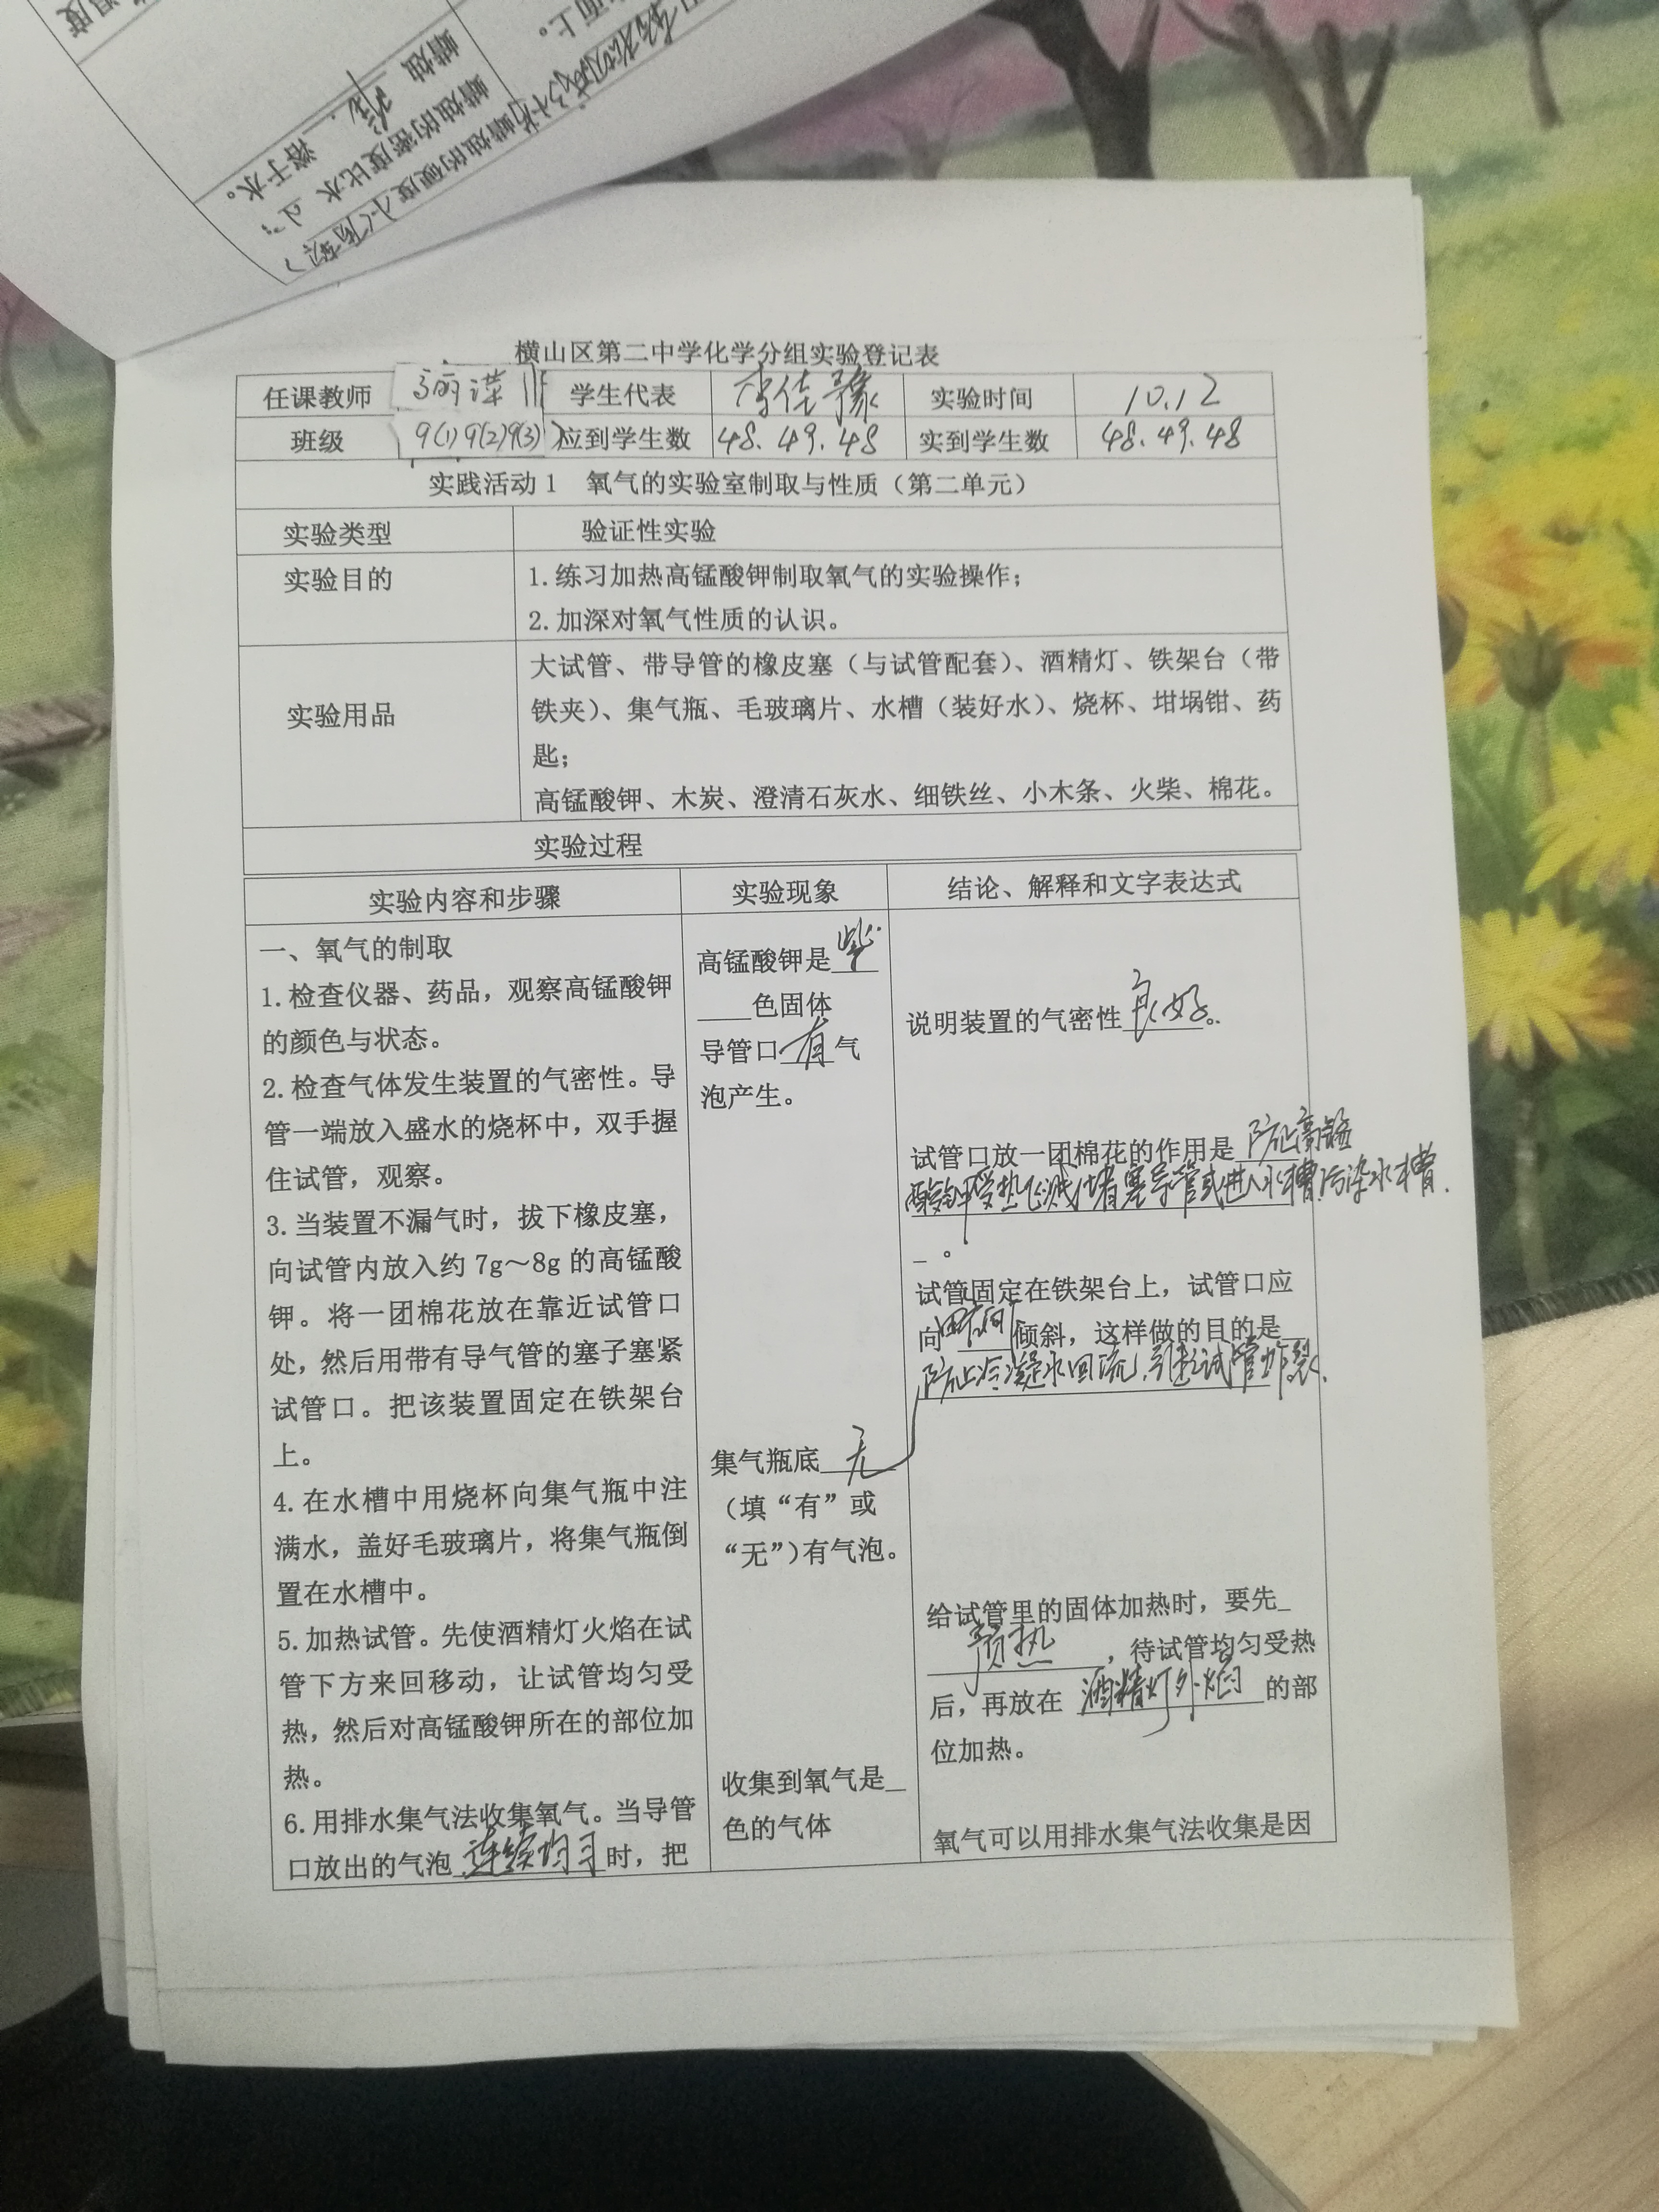 温度
面上。
蜡烛
溶于水。
蜡烛的密度比水 小
蜡烛的硬度小
横山区第二中学化学分组实验登记表
任课教师 学生代表 李佳豫 实验时间 10.12
班级 9(1) 9(2) 9(3) 应到学生数 48.49.48 实到学生数 48.49.48
实践活动1 氧气的实验室制取与性质（第二单元）
实验类型 验证性实验
实验目的 1.练习加热高锰酸钾制取氧气的实验操作；
2.加深对氧气性质的认识。
实验用品 大试管、带导管的橡皮塞（与试管配套）、酒精灯、铁架台（带
铁夹）、集气瓶、毛玻璃片、水槽（装好水）、烧杯、坩埚钳、药
匙；
高锰酸钾、木炭、澄清石灰水、细铁丝、小木条、火柴、棉花。
实验过程
实验内容和步骤 实验现象 结论、解释和文字表达式
一、氧气的制取
1.检查仪器、药品，观察高锰酸钾
的颜色与状态。
2.检查气体发生装置的气密性。导
管一端放入盛水的烧杯中，双手握
住试管，观察。
3.当装置不漏气时，拔下橡皮塞，
向试管内放入约 7g～8g 的高锰酸
钾。将一团棉花放在靠近试管口
处，然后用带有导气管的塞子塞紧
试管口。把该装置固定在铁架台
上。
4.在水槽中用烧杯向集气瓶中注
满水，盖好毛玻璃片，将集气瓶倒
置在水槽中。
5.加热试管。先使酒精灯火焰在试
管下方来回移动，让试管均匀受
热，然后对高锰酸钾所在的部位加
热。
6.用排水集气法收集氧气。当导管
口放出的气泡 连续均匀 时，把
高锰酸钾是 紫
____色固体
导管口 有 气
泡产生。
集气瓶底 无
（填“有”或
“无”)有气泡。
收集到氧气是_
色的气体
说明装置的气密性 良好。
试管口放一团棉花的作用是 防止高锰
酸钾受热飞溅堵塞导管或进入水槽污染水槽.
_ 。
试管固定在铁架台上，试管口应
向 倾斜，这样做的目的是
防止冷凝水回流,引起试管炸裂.
给试管里的固体加热时，要先_
预热 ，待试管均匀受热
后，再放在 酒精灯外焰 的部
位加热。
氧气可以用排水集气法收集是因